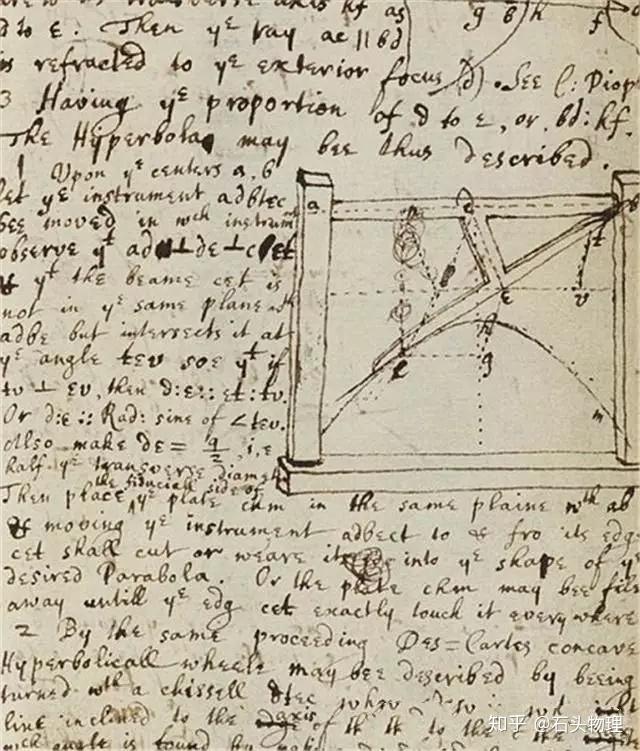 transverse axis hf as
d to ε. Then yᵉ ray ac || bd
is refracted to yᵉ exterior focus (d). See C: Diop
3 Having yᵉ proportion of d to ε, or, bd: hf.
The Hyperbola may bee thus described.
1 Upon yᵉ centers a, b
let yᵉ instrument adbtec
bee moved in wᶜʰ instrumᵗ
observe yᵗ ad ⊥ de ⊥ cet
& yᵗ the beame cet is
not in yᵉ same plane wᵗʰ
adbe but intersects it at
yᵉ angle tev soe yᵗ if
tv ⊥ ev, then d:ε :: et:tv.
Or d:ε :: Rad: sine of ∠tev.
Also make de = q/2, i.e
half yᵉ transverse diamet
the fiduciall side of
Then place yᵉ plate chm in the same plaine wᵗʰ ab
& moving yᵉ instrument adbect to & fro its edg
cet shall cut or weare it into yᵉ shape of yᵉ
desired Parabola. Or the plate chm may bee file
away untill yᵉ edg cet exactly touch it everywhere
2 By the same proceeding Des=Cartes concave
Hyperbolicall wheele may bee described by beeing
turned wᵗʰ a chissell
line inclined to the
wᶜʰ angle is found by
g h f
a b
c
t
e v
h
g
m
知乎 @石头物理